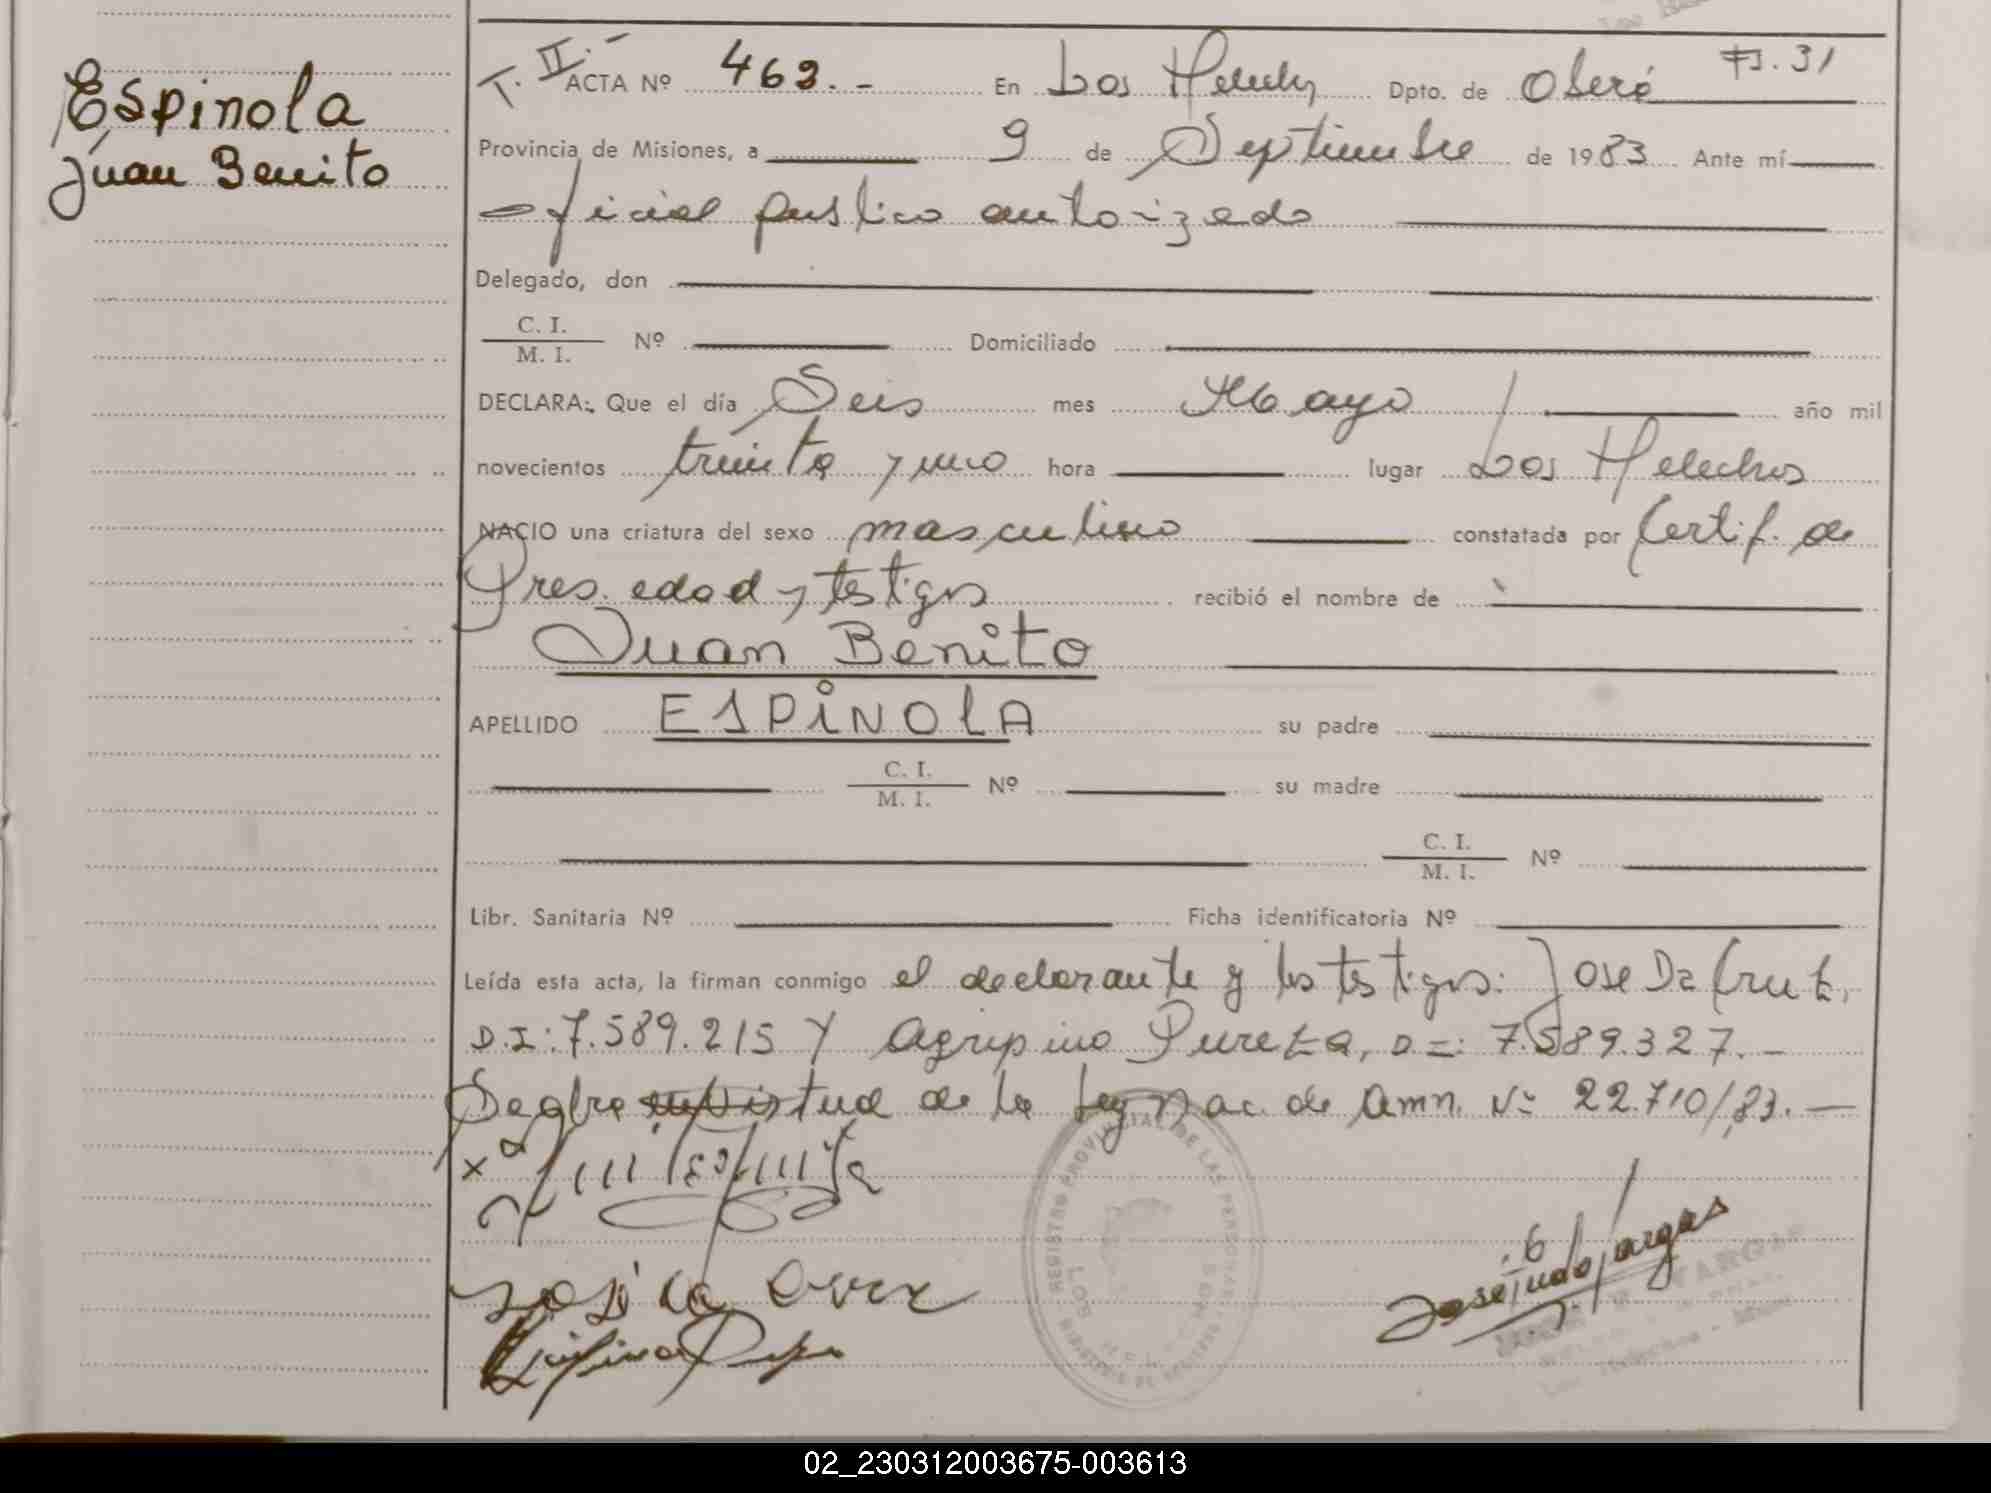 Espinola
Juan Benito
T. II.-
ACTA Nº 463.- En Los Helechos Dpto. de Oberá Fº. 31
Provincia de Misiones, a 9 de Septiembre de 1983 Ante mí
oficial publico autorizado
Delegado, don
C. I.
M. I. Nº Domiciliado
DECLARA: Que el día Seis mes Mayo año mil
novecientos treinta y uno hora lugar Los Helechos
NACIO una criatura del sexo masculino constatada por Certif. de
Pres. edad y testigos recibió el nombre de
Juan Benito
APELLIDO ESPINOLA su padre
C. I.
M. I. Nº su madre
C. I.
M. I. Nº
Libr. Sanitaria Nº Ficha identificatoria Nº
Leída esta acta, la firman conmigo el declarante y los testigos: Jose Da Cruz,
D.I: 7.589.215 Y Agripino Pureza, D I: 7.589.327.-
de la Ley Nac. de Amn. Nº 22.710/83.-
REGISTRO PROVINCIAL DE LAS PERSONAS
LOS HELECHOS
Jose Vargas
VARGAS
Los Helechos - Mnes.
02_230312003675-003613